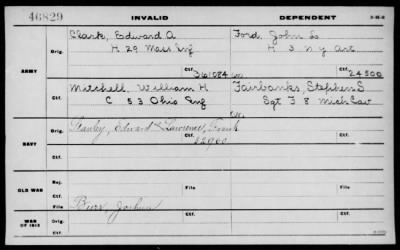 46829 INVALID DEPENDENT
Clark, Edward A Ford, John S
Orig. H 29 Mass Inf H 3 N Y Art
ARMY Ctf. 361084 Ctf. 24500
Mitchell, William H Fairbanks, Stephen S
Ctf. C 53 Ohio Inf Sgt F 8 Mich Cav
Stanley, Edward Lawrence, Frank
Orig. 22960
NAVY
Ctf.
Rej.
OLD WAR File File
Ctf.
Burr Joshua
WAR OF 1812 Orig. Ctf. File
Ctf.